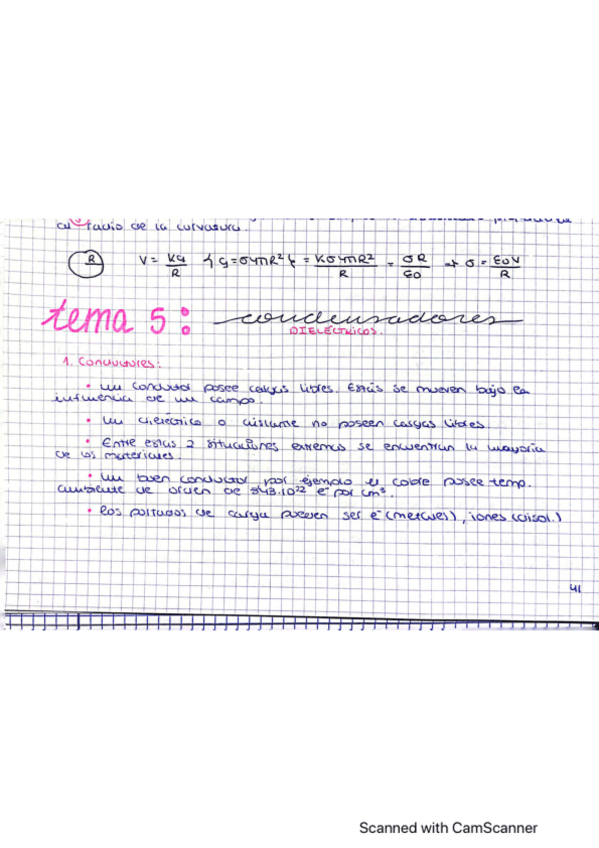 al radio de la curvatura.
R V = Kq/R { q = σ4πR² } = Kσ4πR²/R = σR/ε0 → σ = ε0V/R
tema 5: condensadores
DIELÉCTRICOS.
1. Conductores:
• un conductor posee cargas libres. Estas se mueven bajo la
influencia de un campo.
• un dieléctrico o aislante no poseen cargas libres
• Entre estas 2 situaciones extremas se encuentran la mayoría
de los materiales.
• un buen conductor, por ejemplo el cobre posee temp.
ambiente de orden de 10²² e⁻ por cm³.
• los portados de carga pueden ser e⁻ (metales), iones (disol.)
41
Scanned with CamScanner